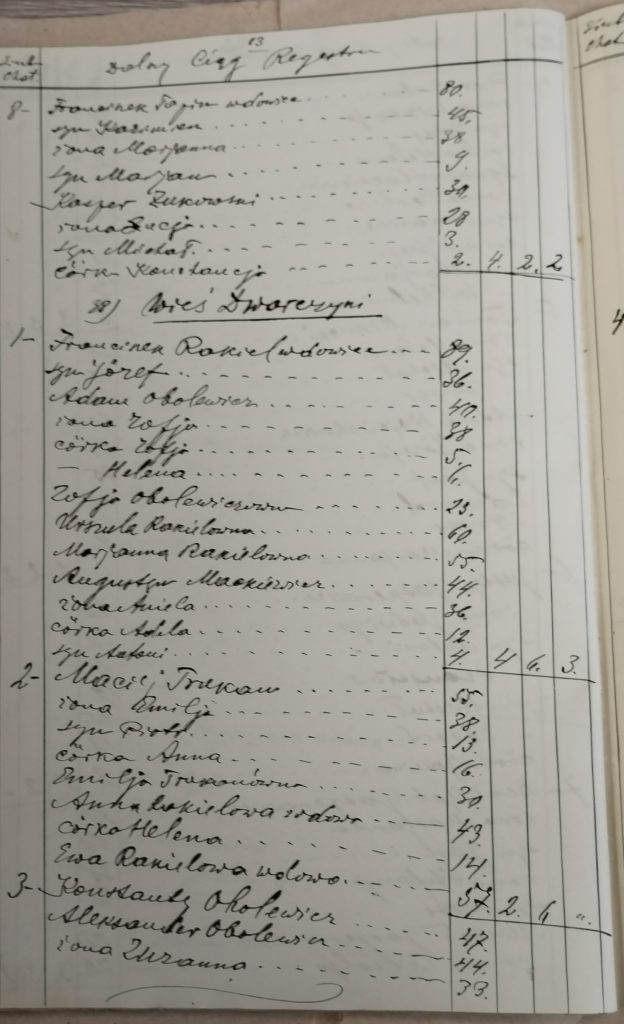 13
Dalszy Ciąg Regestru
8- Franciszek Tapin wdowiec 80.
syn Kazimierz 45.
żona Marjanna 38
syn Marjan 9.
Kasper Żukowski 30.
żona Łucja 28
syn Michał 3.
córka Konstancja 2. 4. 2. 2
38) Wieś Dworczyni
1- Franciszek Rakiel wdowiec 89.
syn Józef 36.
Adam Obolewicz 40.
żona Zofja 38
córka Zofja 5.
— Helena 6.
Zofja Obolewiczówna 23.
Urszula Rakielowna 60.
Marjanna Rakielowna 55.
Augustyn Mackiewicz 44.
żona Aniela 36.
córka Adela 12.
syn Antoni 4. 4 6. 3.
2- Maciej Trakan 55.
żona Emilja 38.
syn Piotr 13.
córka Anna 16.
Emilja Trakanówna 30.
Anna Rakielowa wdowa 43.
córka Helena 14.
Ewa Rakielowa wdowa 57. 2. 6 "
3- Konstanty Obolewicz 47.
Aleksander Obolewicz 44.
żona Zuzanna 33.
4